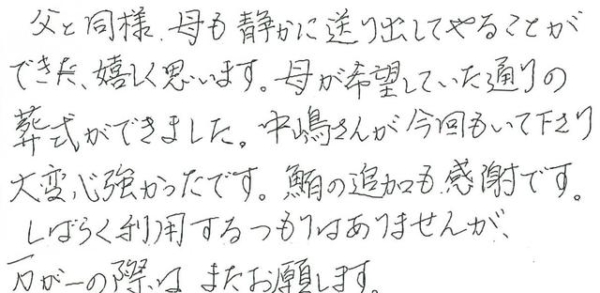 父と同様、母も静かに送り出してやることが
できた、嬉しく思います。母が希望していた通りの
葬式ができました。中嶋さんが今回もいて下さり
大変心強かったです。鮪の追加も感謝です。
しばらく利用するつもりはありませんが、
万が一の際は またお願します。